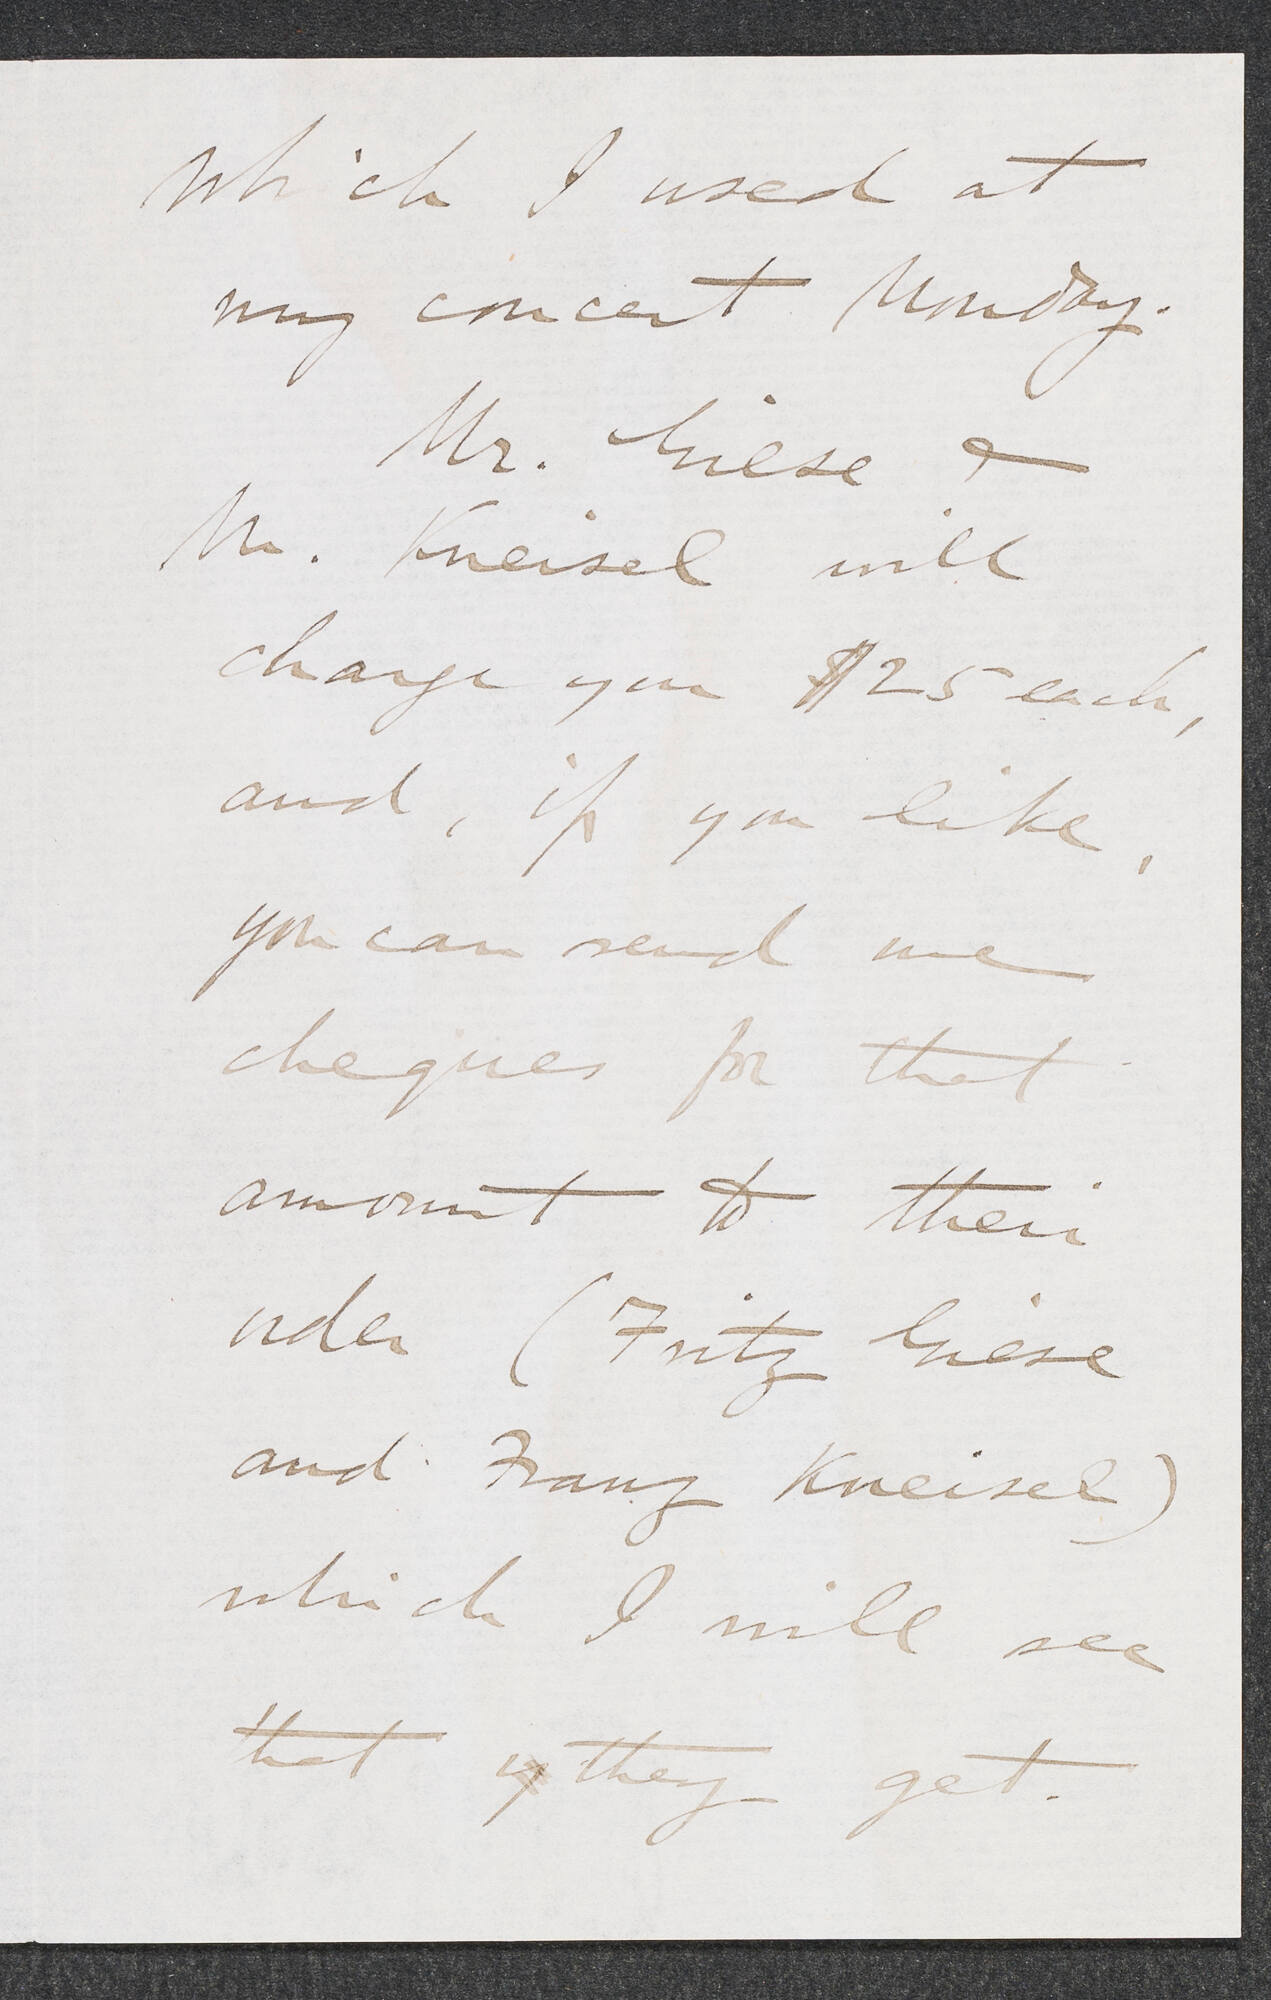 which I used at
my concert Monday.
Mr. Giese &
Mr. Kneisel will
charge you $25 each,
and, if you like,
you can send me
cheques for that
amount to their
order (Fritz Giese
and Franz Kneisel)
which I will see
that they get.